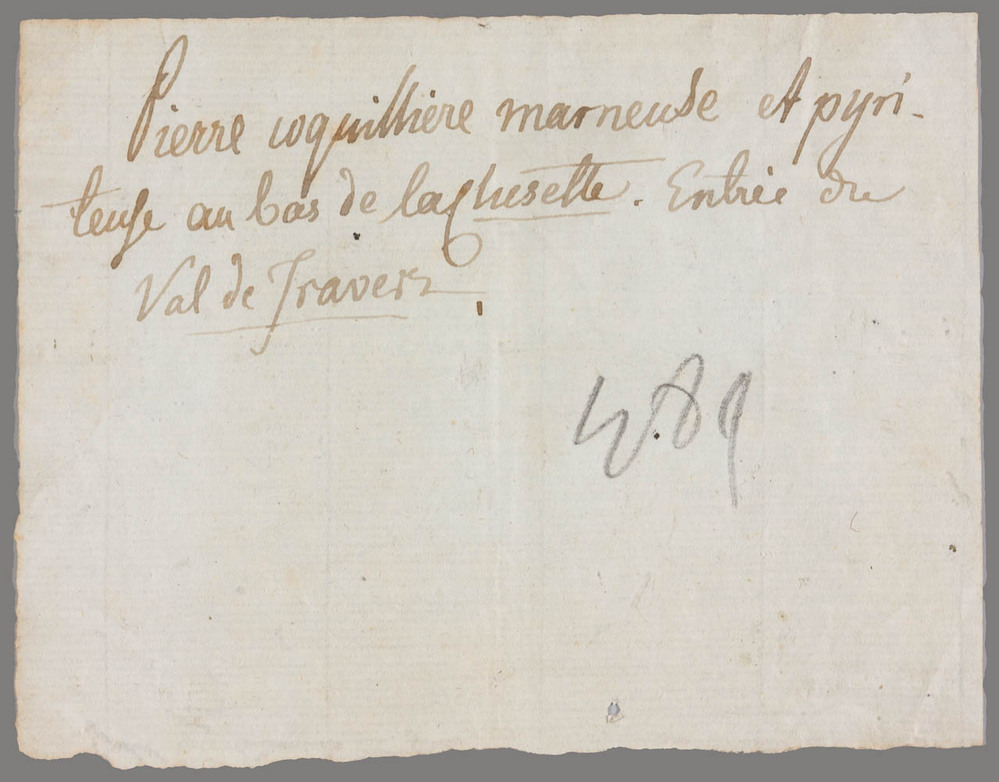 Pierre coquillière marneuse et pyri-
teuse au bas de la Clusette. Entrée du
Val de Travers